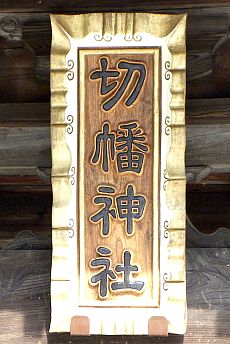 切幡神社